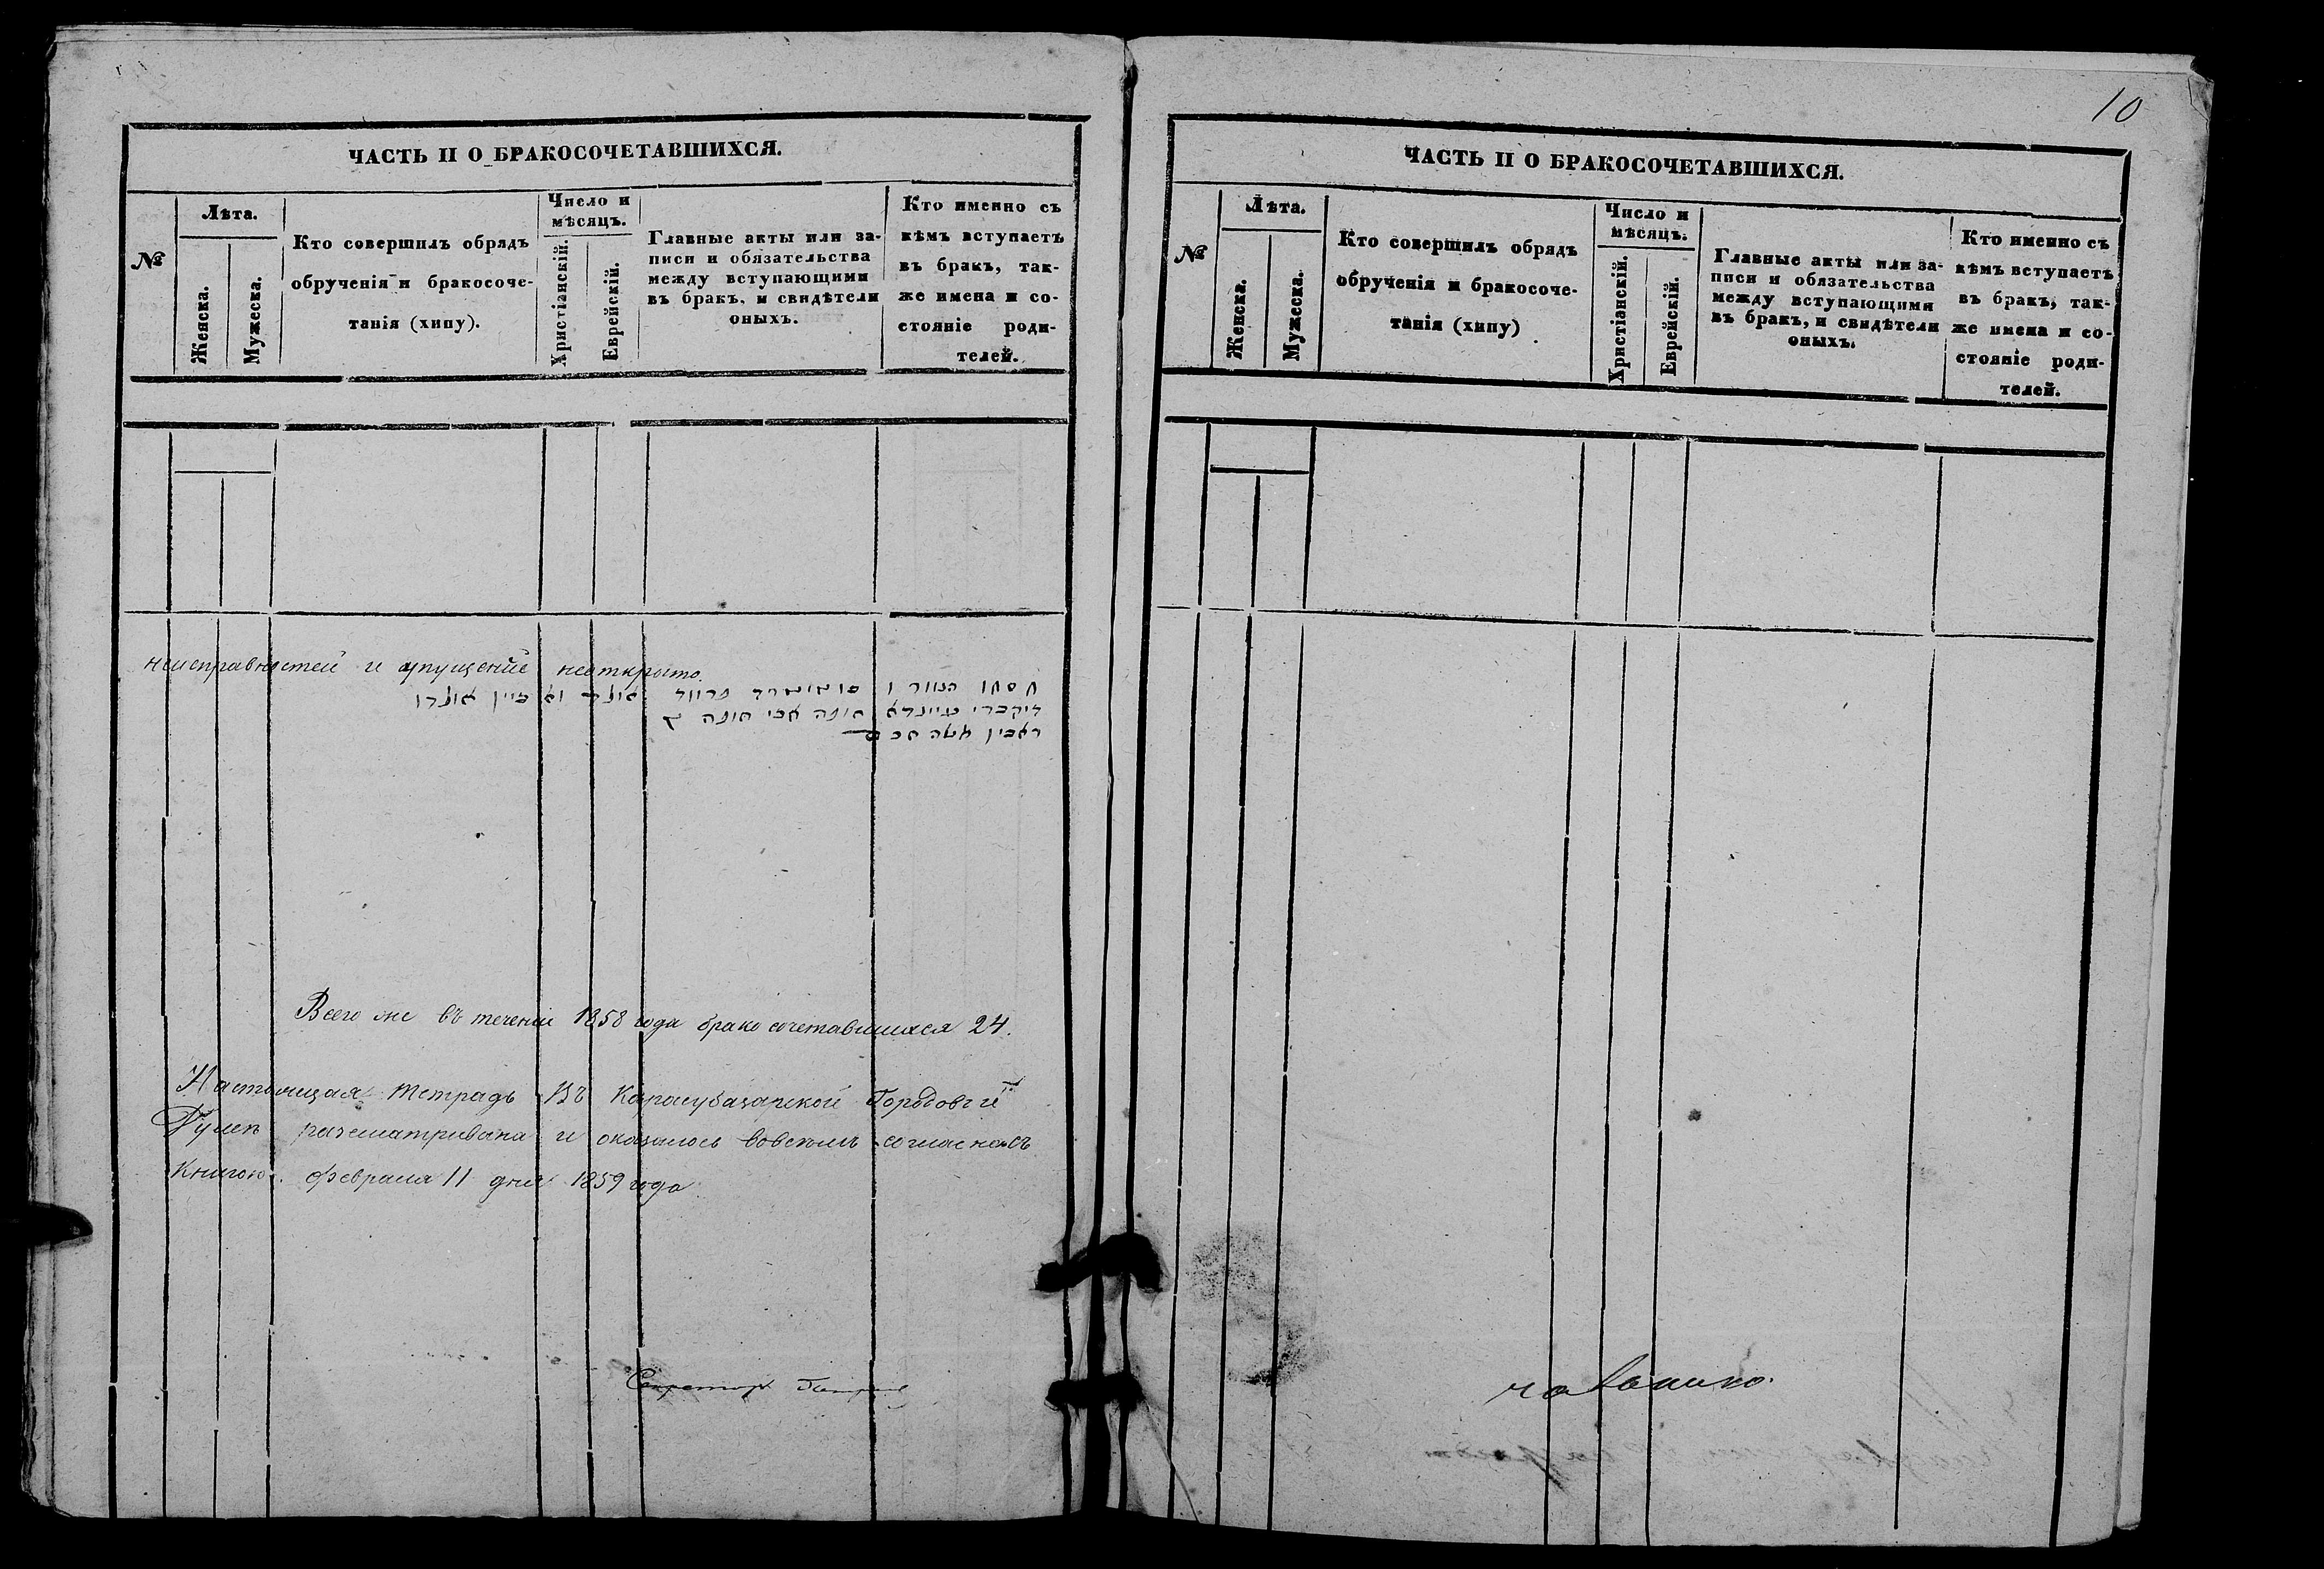 ЧАСТЬ II О БРАКОСОЧЕТАВШИХСЯ.
№
Лѣта.
Женска.
Мужеска.
Кто совершилъ обрядъ
обрученія и бракосоче-
танія (хипу).
Число и
мѣсяцъ.
Христіанскій.
Еврейскій.
Главные акты или за-
писи и обязательства
между вступающими
въ бракъ, и свидѣтели
оныхъ.
Кто именно съ
кѣмъ вступаетъ
въ бракъ, так-
же имена и со-
стояніе роди-
телей.
неисправностей и упущеніе неоткрыто.
Всего же въ теченіи 1858 года бракосочетавшихся 24.
Настоящая тетрадь Въ Карасубазарской Городовой
Думѣ разсматривана и оказалось вовсемъ согласна съ
Книгою. Февраля 11 дня 1859 года
Секретарь
10
ЧАСТЬ II О БРАКОСОЧЕТАВШИХСЯ.
№
Лѣта.
Женска.
Мужеска.
Кто совершилъ обрядъ
обрученія и бракосоче-
танія (хипу)
Число и
мѣсяцъ.
Христіанскій.
Еврейскій.
Главные акты или за-
писи и обязательства
между вступающими
въ бракъ, и свидѣтели
оныхъ.
Кто именно съ
кѣмъ вступаетъ
въ бракъ, так-
же имена и со-
стояніе роди-
телей.